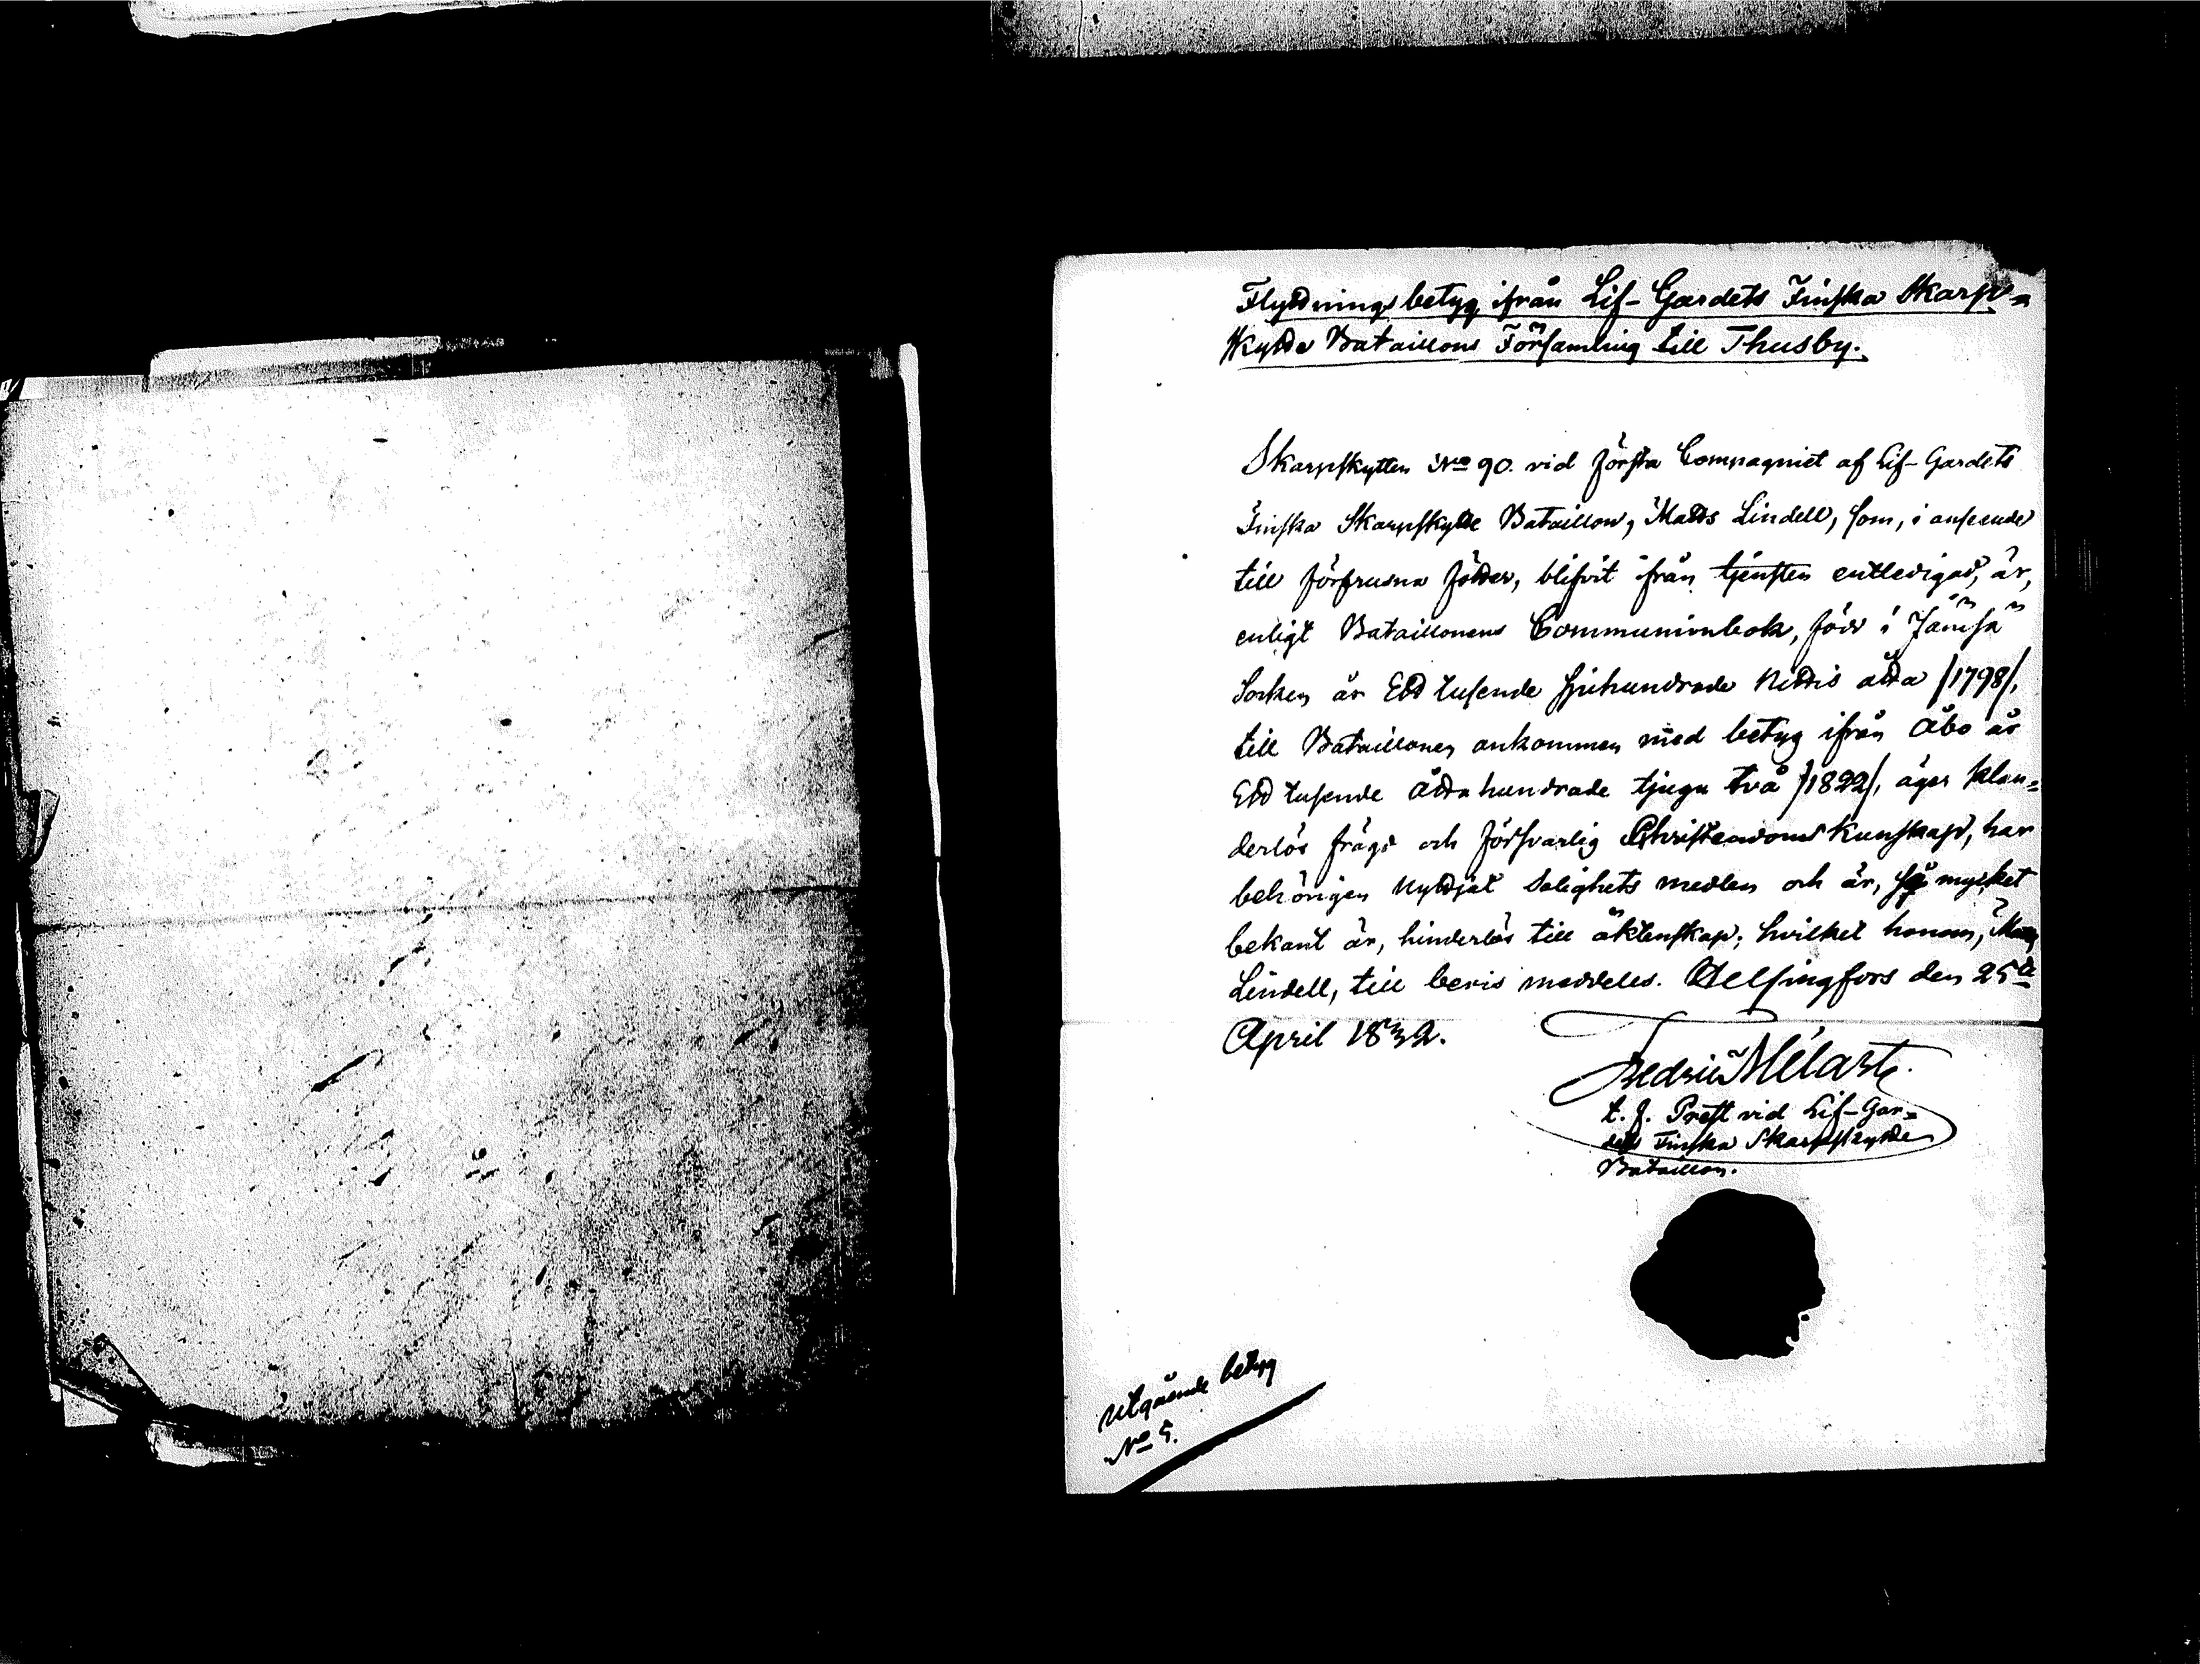 Flyttnings betyg ifrån Lif-Gardets Finska Skarp=
skytte Bataillons Församling till Thusby.
Skarpskytten No 90. vid första Compagniet af Lif-Gardets
Finska Skarpskytte Bataillon, Matts Lindell, som, i anseende
till förfrusna fötter, blifvit ifrån tjensten entledigad, är,
enligt Bataillonens Communionbok, född i Jämsä
Socken år Ett tusende sjuhundrade Nittio åtta /1798/,
till Bataillonen ankommen med betyg ifrån Åbo år
Ett tusende Åtta hundrade tjugu två /1822/, äger klan=
derlös frägd och försvarlig Christendoms Kunskap, har
behörigen Nyttjat Salighets medlen och är, så mycket
bekant är, hinderlös till äktenskap; hvilket honom, Matts
Lindell, till bevis meddeles. Helsingfors den 25te
April 1832.
Fredric Mélart.
t. f. Præst vid Lif-Gar=
dets Finska Skarpskytte
Bataillon.
Utgående betyg
No 5.